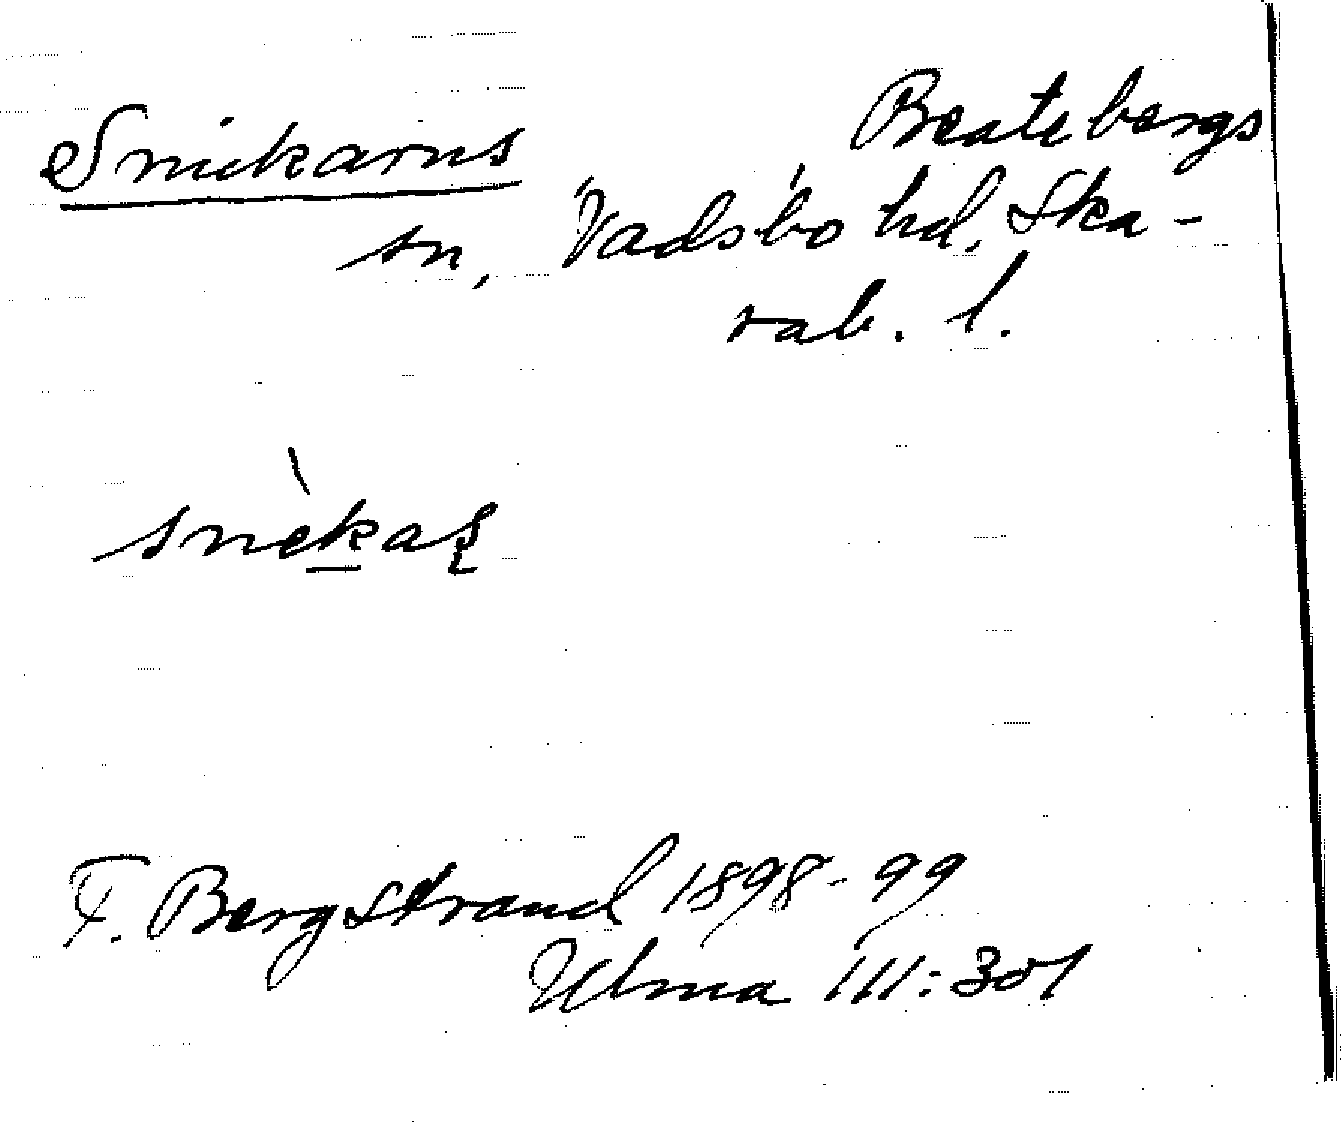 Snickarns
Beatebergs
sn, Vadsbo hd. Ska-
rab. l.
snèkaş
F. Bergstrand 1898-99
Ulma 111:301